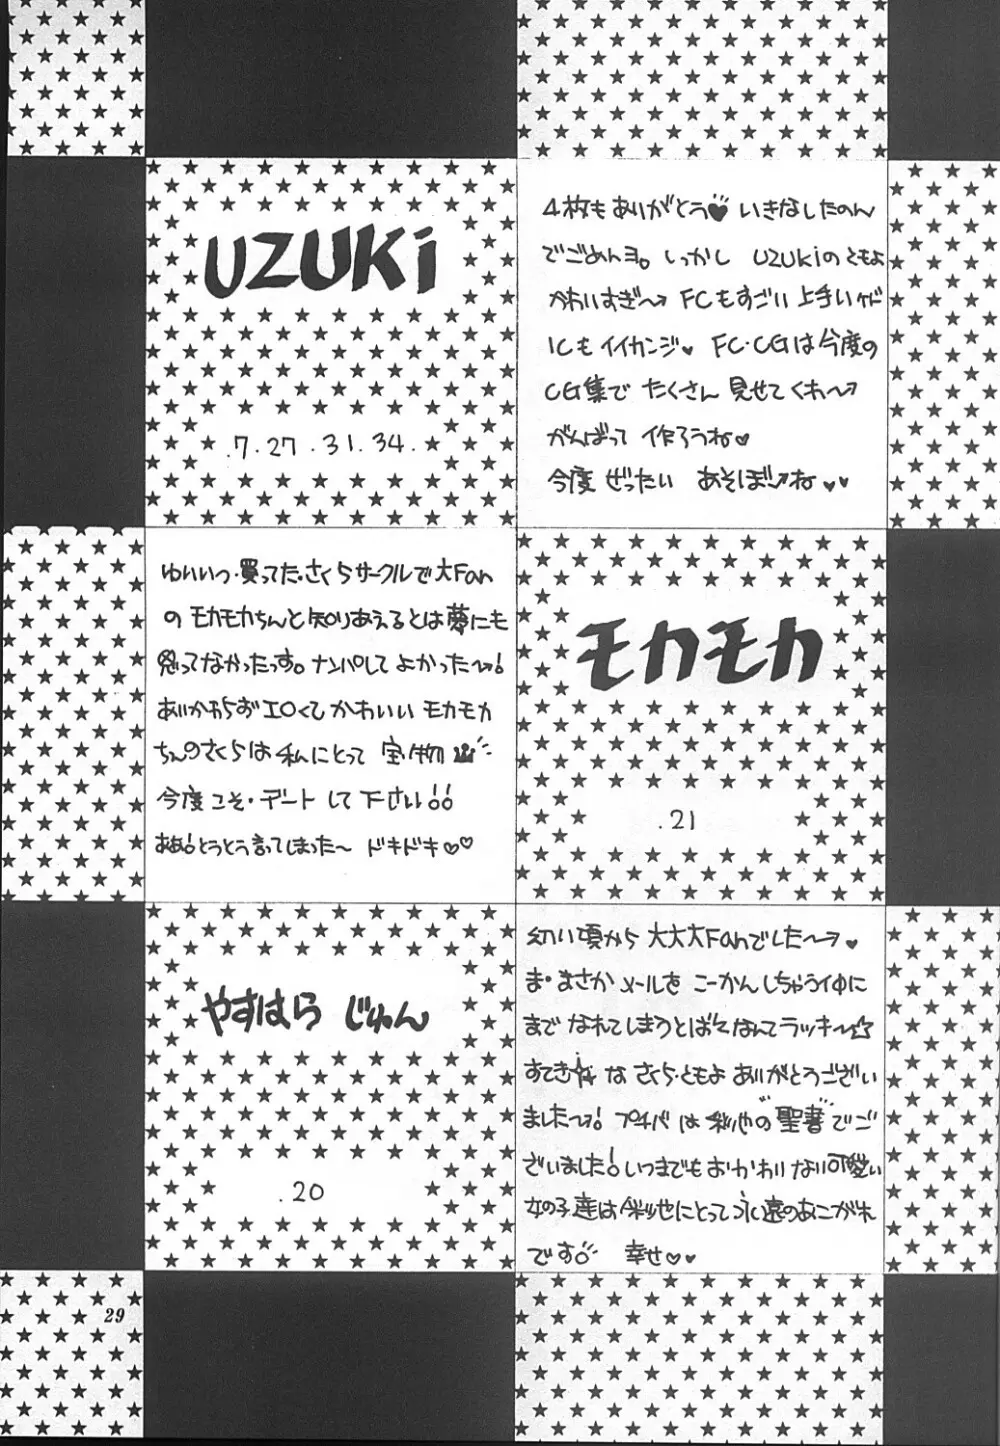 UZUKi
.7.27.31.34.
4枚もありがとう♥ いきなしたのん
でごめんヨ。しっかし UZUKiのともよ
かわいすぎ〜→ FCもすごい上手いケド
ICもイイカンジ♥ FC・CGは今度の
CG集で たくさん 見せてくれ〜→
がんばって 作ろうね♥
今度 ぜったい あそぼ→ね ♥♥
ゆいいつ・買ってた・さくらサークルで大Fan
の モカモカちんと知りあえるとは夢にも
思ってなかったっす。ナンパして よかった〜→!
あいかわらず エロくて かわいい モカモカ
ちんのさくらは 私にとって 宝物
今度こそ・デート して 下さい!!
ああ!とうとう言ってしまった〜 ドキドキ♡♡
モカモカ
.21
やすはら じゅん
.20
幼い頃から 大大大Fanでした〜→♥
ま・まさか メールを こーかんしちゃうイ中に
まで なれてしまうとは" なんてラッキ〜☆
すてき☆ な さくら・ともよ ありがとうござい
ました〜→! プチバ は 彩也の "聖書" でご
ざいました!いつまでもおかわりない可愛い
女の子達は 彩也にとって 永遠のあこがれ
です! 幸せ♡♥
29